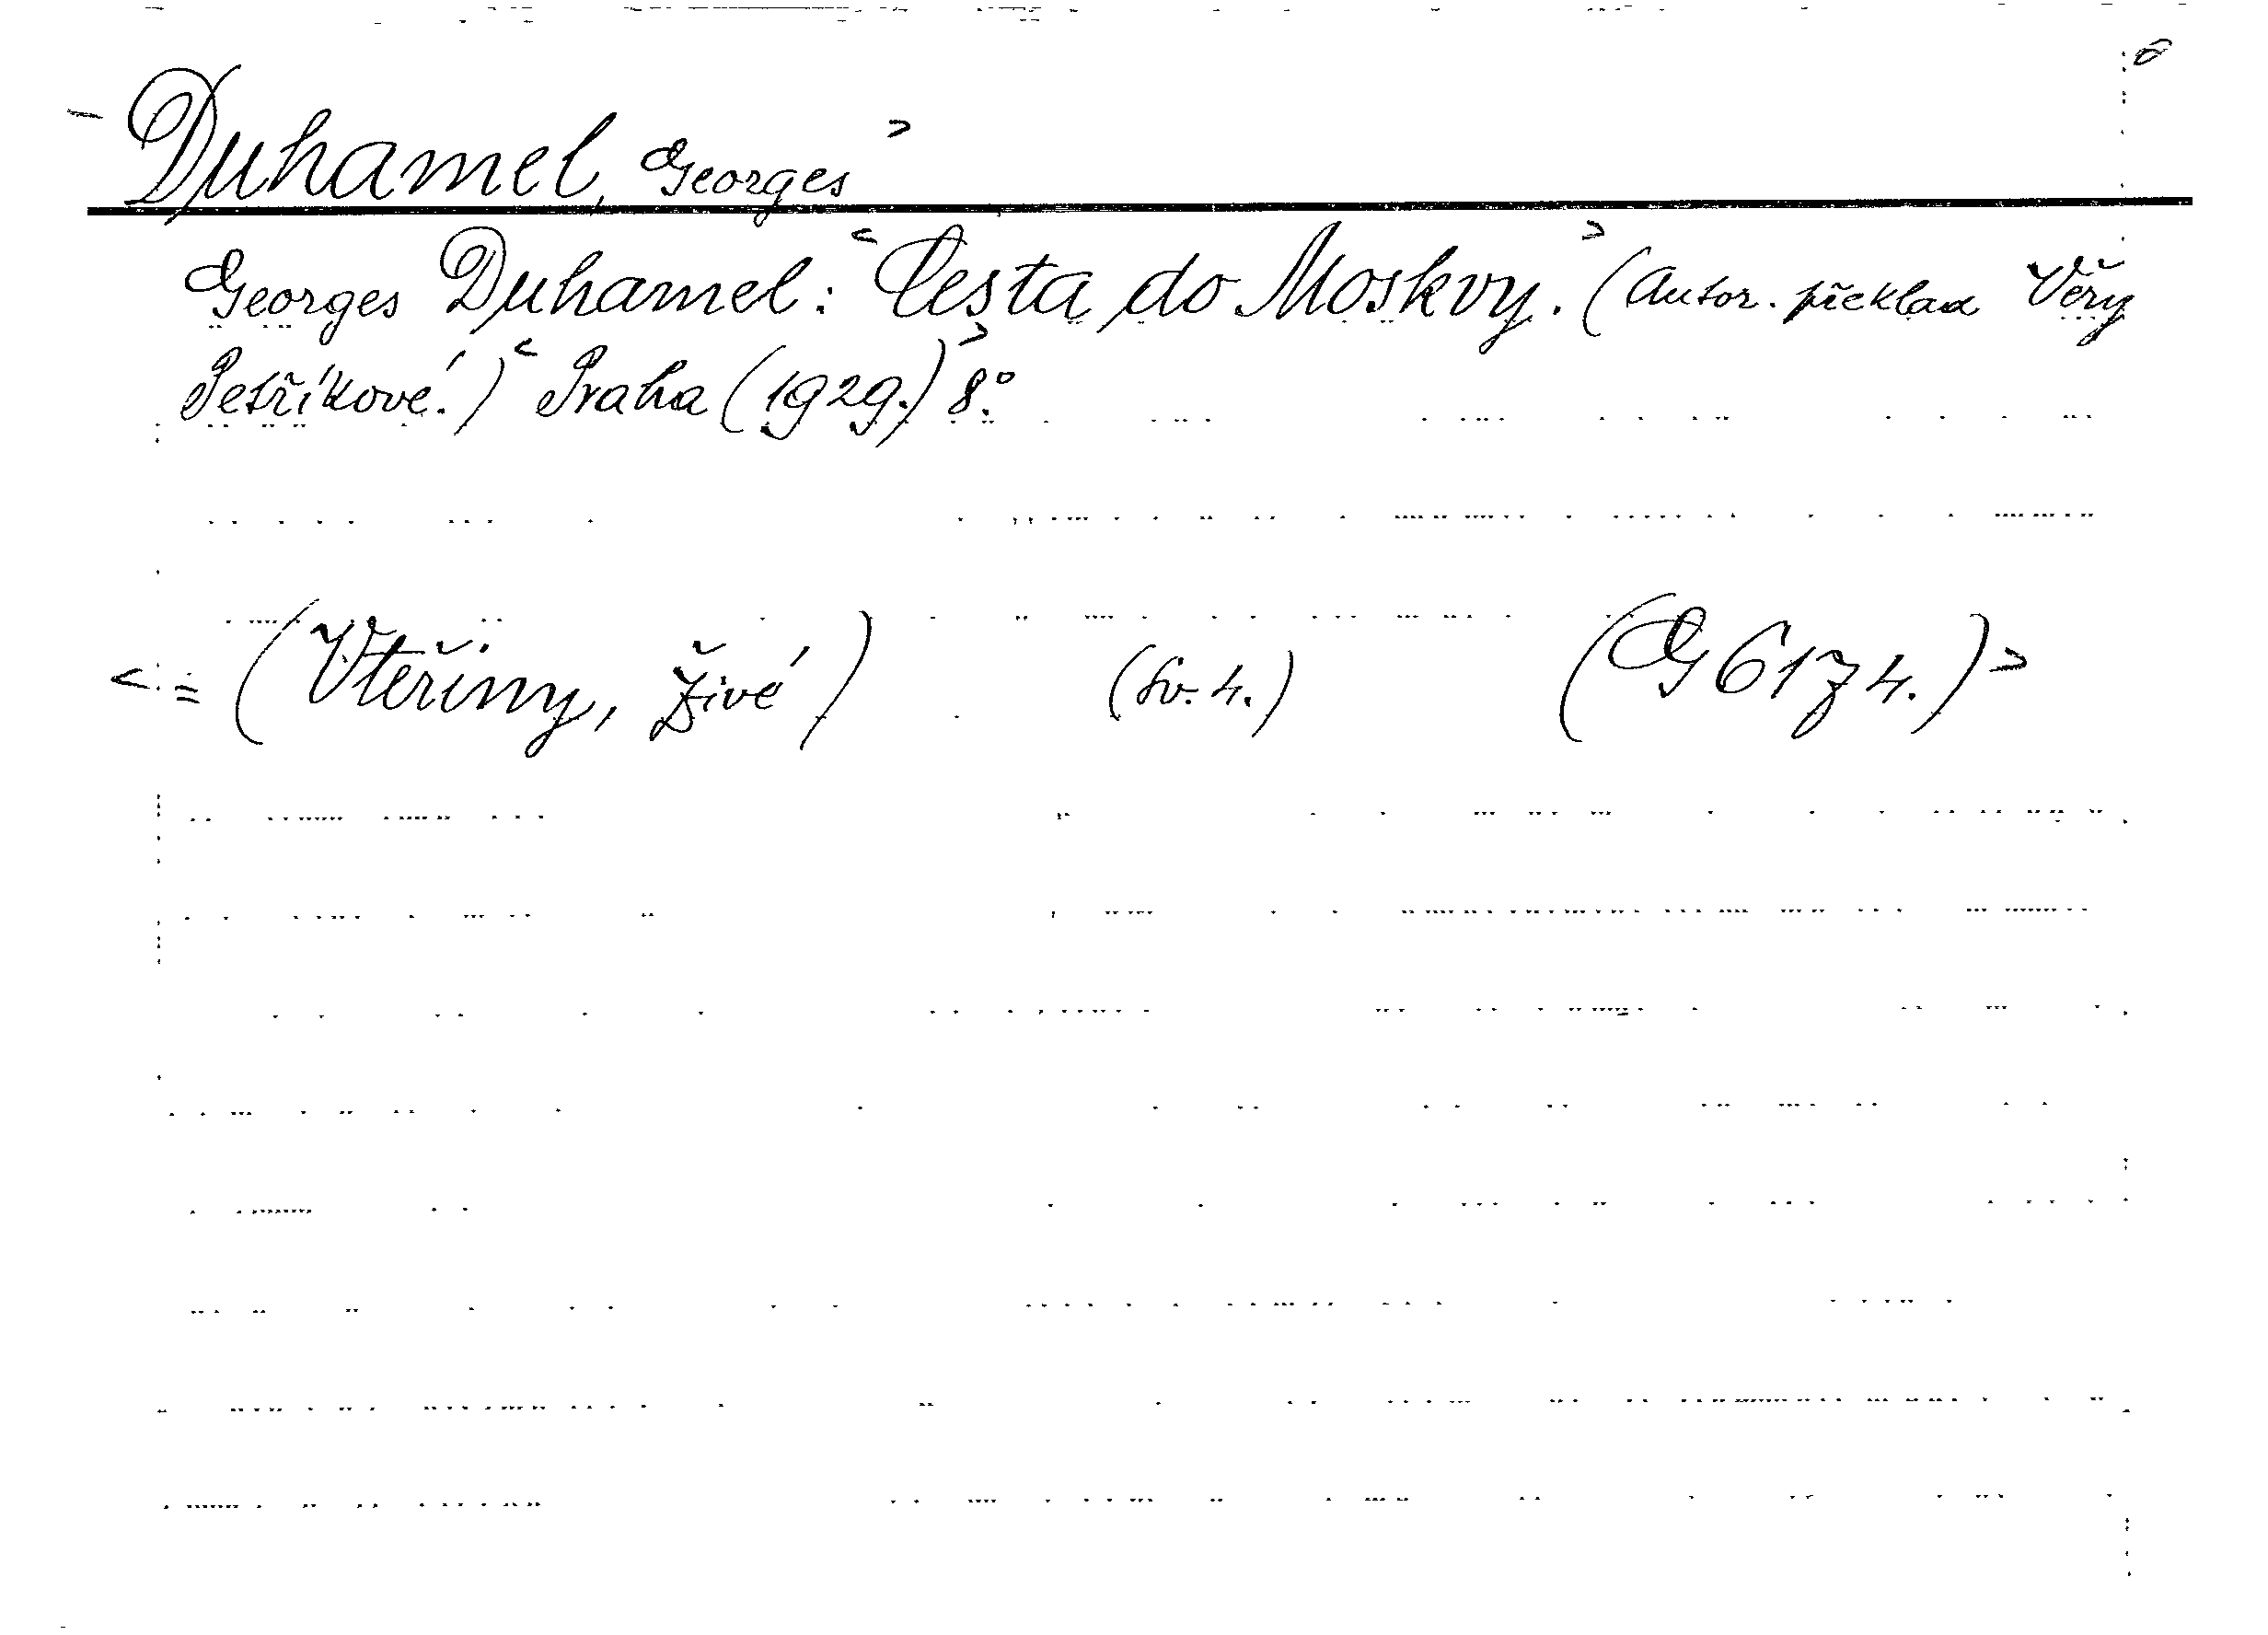 – Duhamel, Georges >
Georges Duhamel: < Cesta do Moskvy. > (Autor. překlad Věry
Petříkové.) < Praha (1929.) > 8°.
< = (Vteřiny, živé) (Sv. 4.) (G 6174.) >